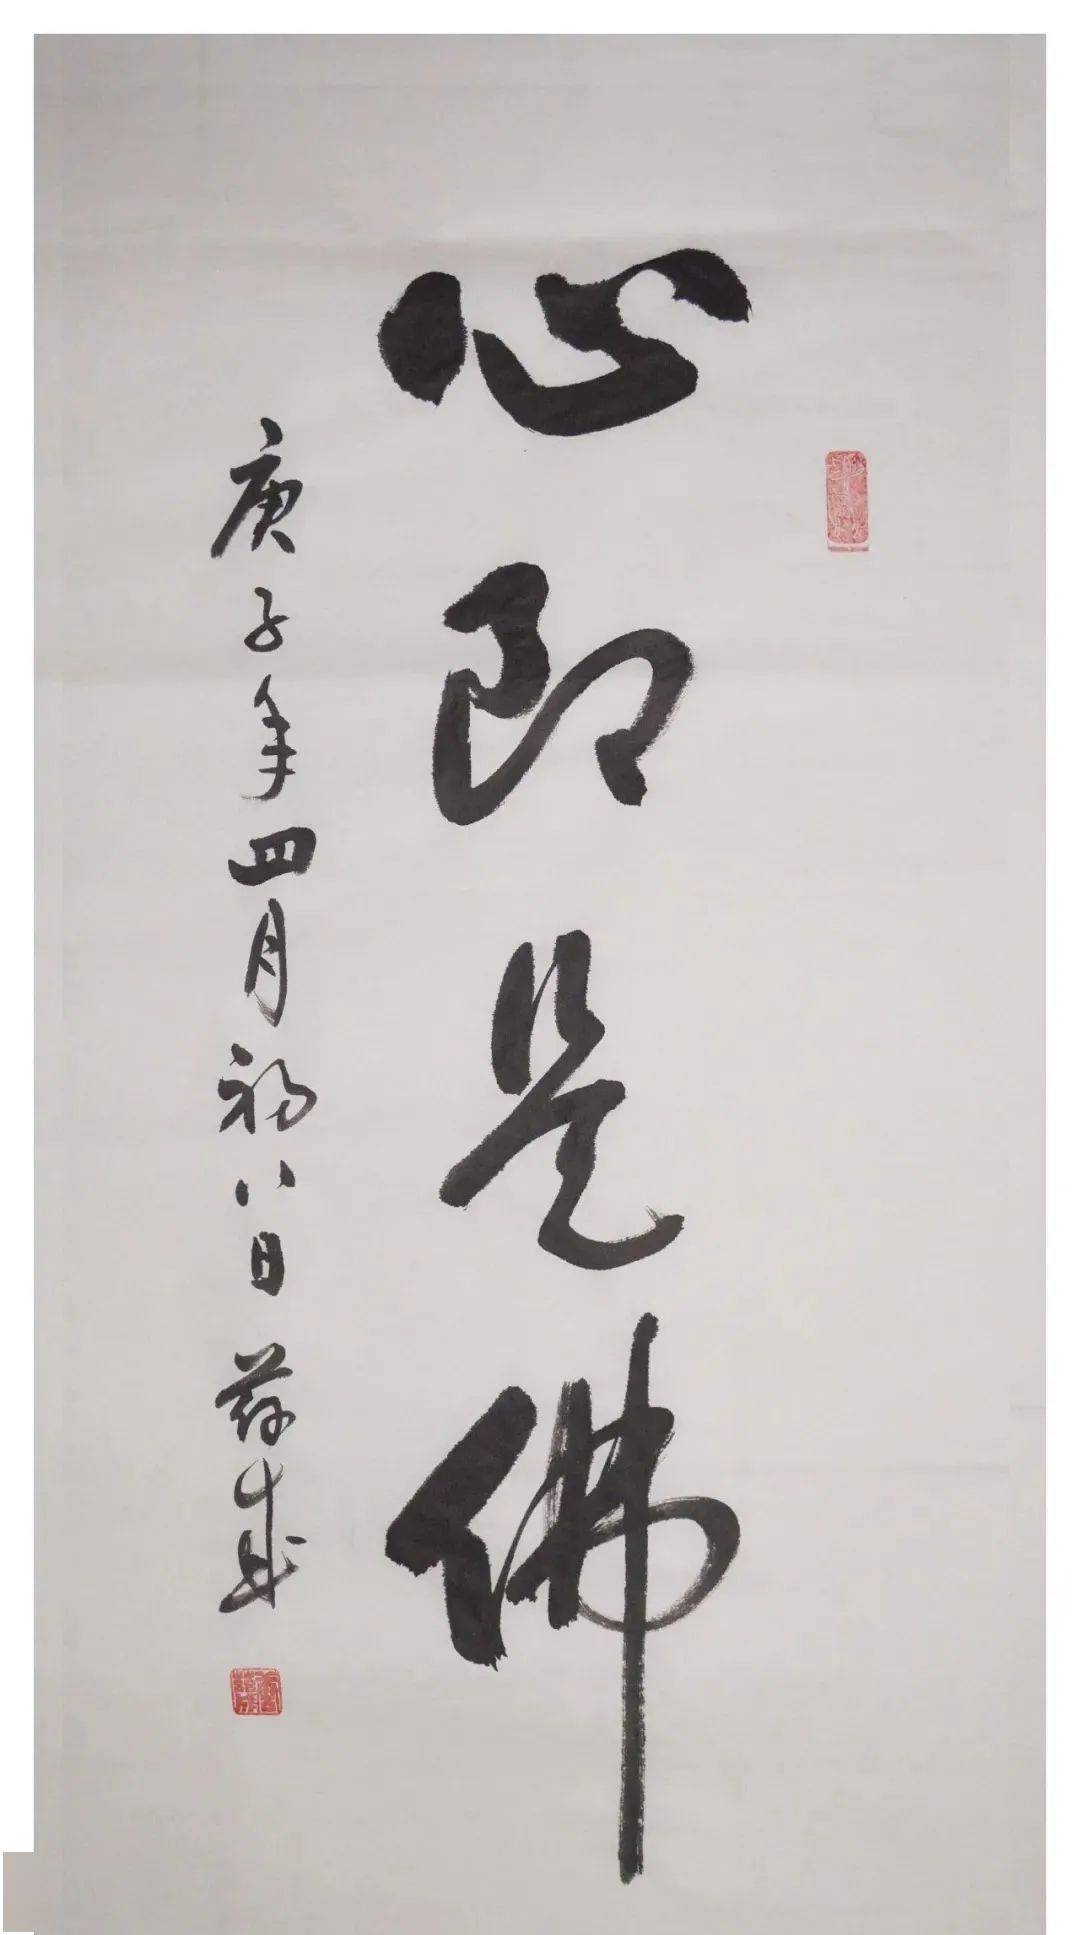 心即是佛
庚子年四月初八日